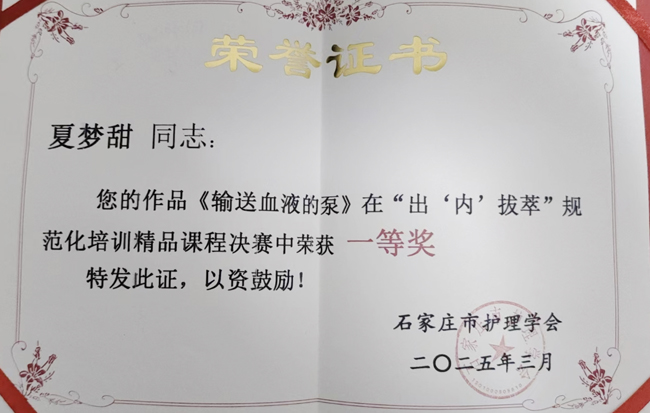 荣誉证书
夏梦甜 同志：
您的作品《输送血液的泵》在“出‘内’拔萃”规
范化培训精品课程决赛中荣获 一等奖
特发此证，以资鼓励！
石家庄市护理学会
二〇二五年三月